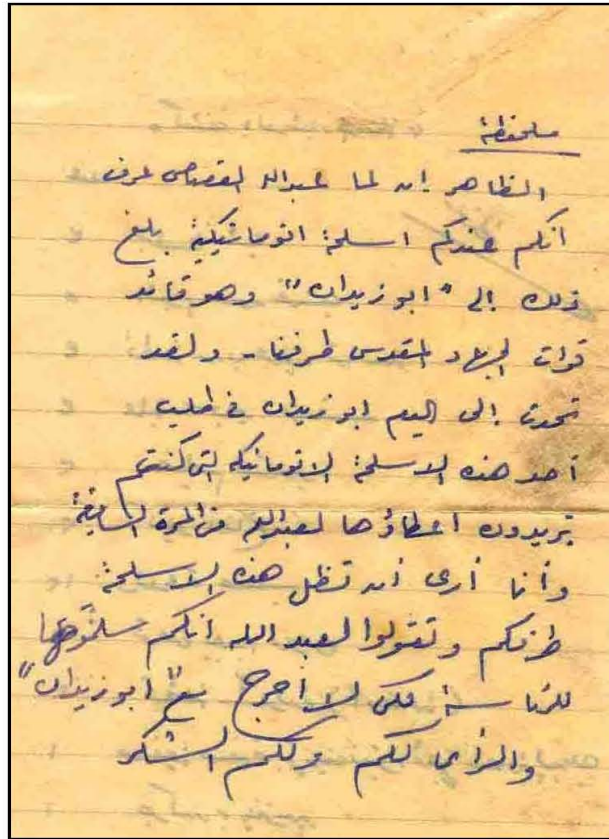 ملحوظة
الظاهر ان لما عبدالله القصاص عرف
أنكم عندكم اسلحة اتوماتيكية بلغ
ذلك إلى "ابو زيدان" وهو قائد
قوات الجهاد المقدس طرفنا - ولقد
تحدث إلى اليوم ابو زيدان في طلب
أحد هذه الاسلحة الاتوماتيكه التى كنتم
تريدون اعطاؤها لعبدالله في المرة السابقة
وأنا أرى أن تظل هذه الاسلحة
طرفكم وتقولوا لعبد الله انكم سلمتوها
للرئاسة لكى لا احرج مع "ابو زيدان"
والرأى لكم ولكم الشكر